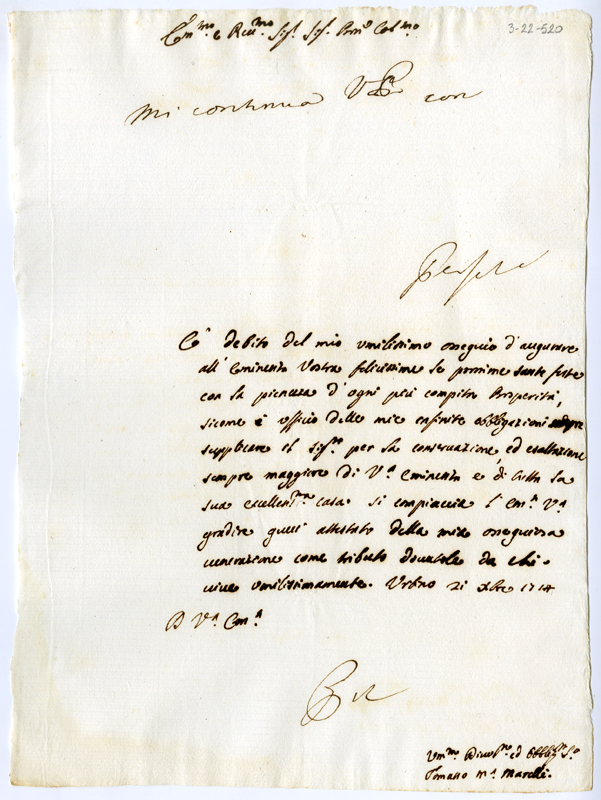 Em.mo e Rev.mo Sig.r Sig.r Pron.e Col.mo
3-22-520
Mi continua V. con
È debito del mio umilissimo ossequio d'augurare
all'Eminenza Vostra felicissime le prossime sante feste
con la pienezza d'ogni più compita Prosperità,
sicome è ufficio delle mie infinite obbligazioni sempre
supplicare il Sig.re per la conservazione, ed esaltazione
sempre maggiore di V.a Eminenza e di tutta la
sua eccellen.ma casa. Si compiaccia l'Em.a V.a
gradire quest'attestato della mia ossequiosa
venerazione come tributo dovutole da chi
vive umilissimamente. Urbino 21 Xbre 1714
D V.a Em.a
Um.mo Divot.mo ed Obblig.mo S.e
Tomaso M.a Marelli.